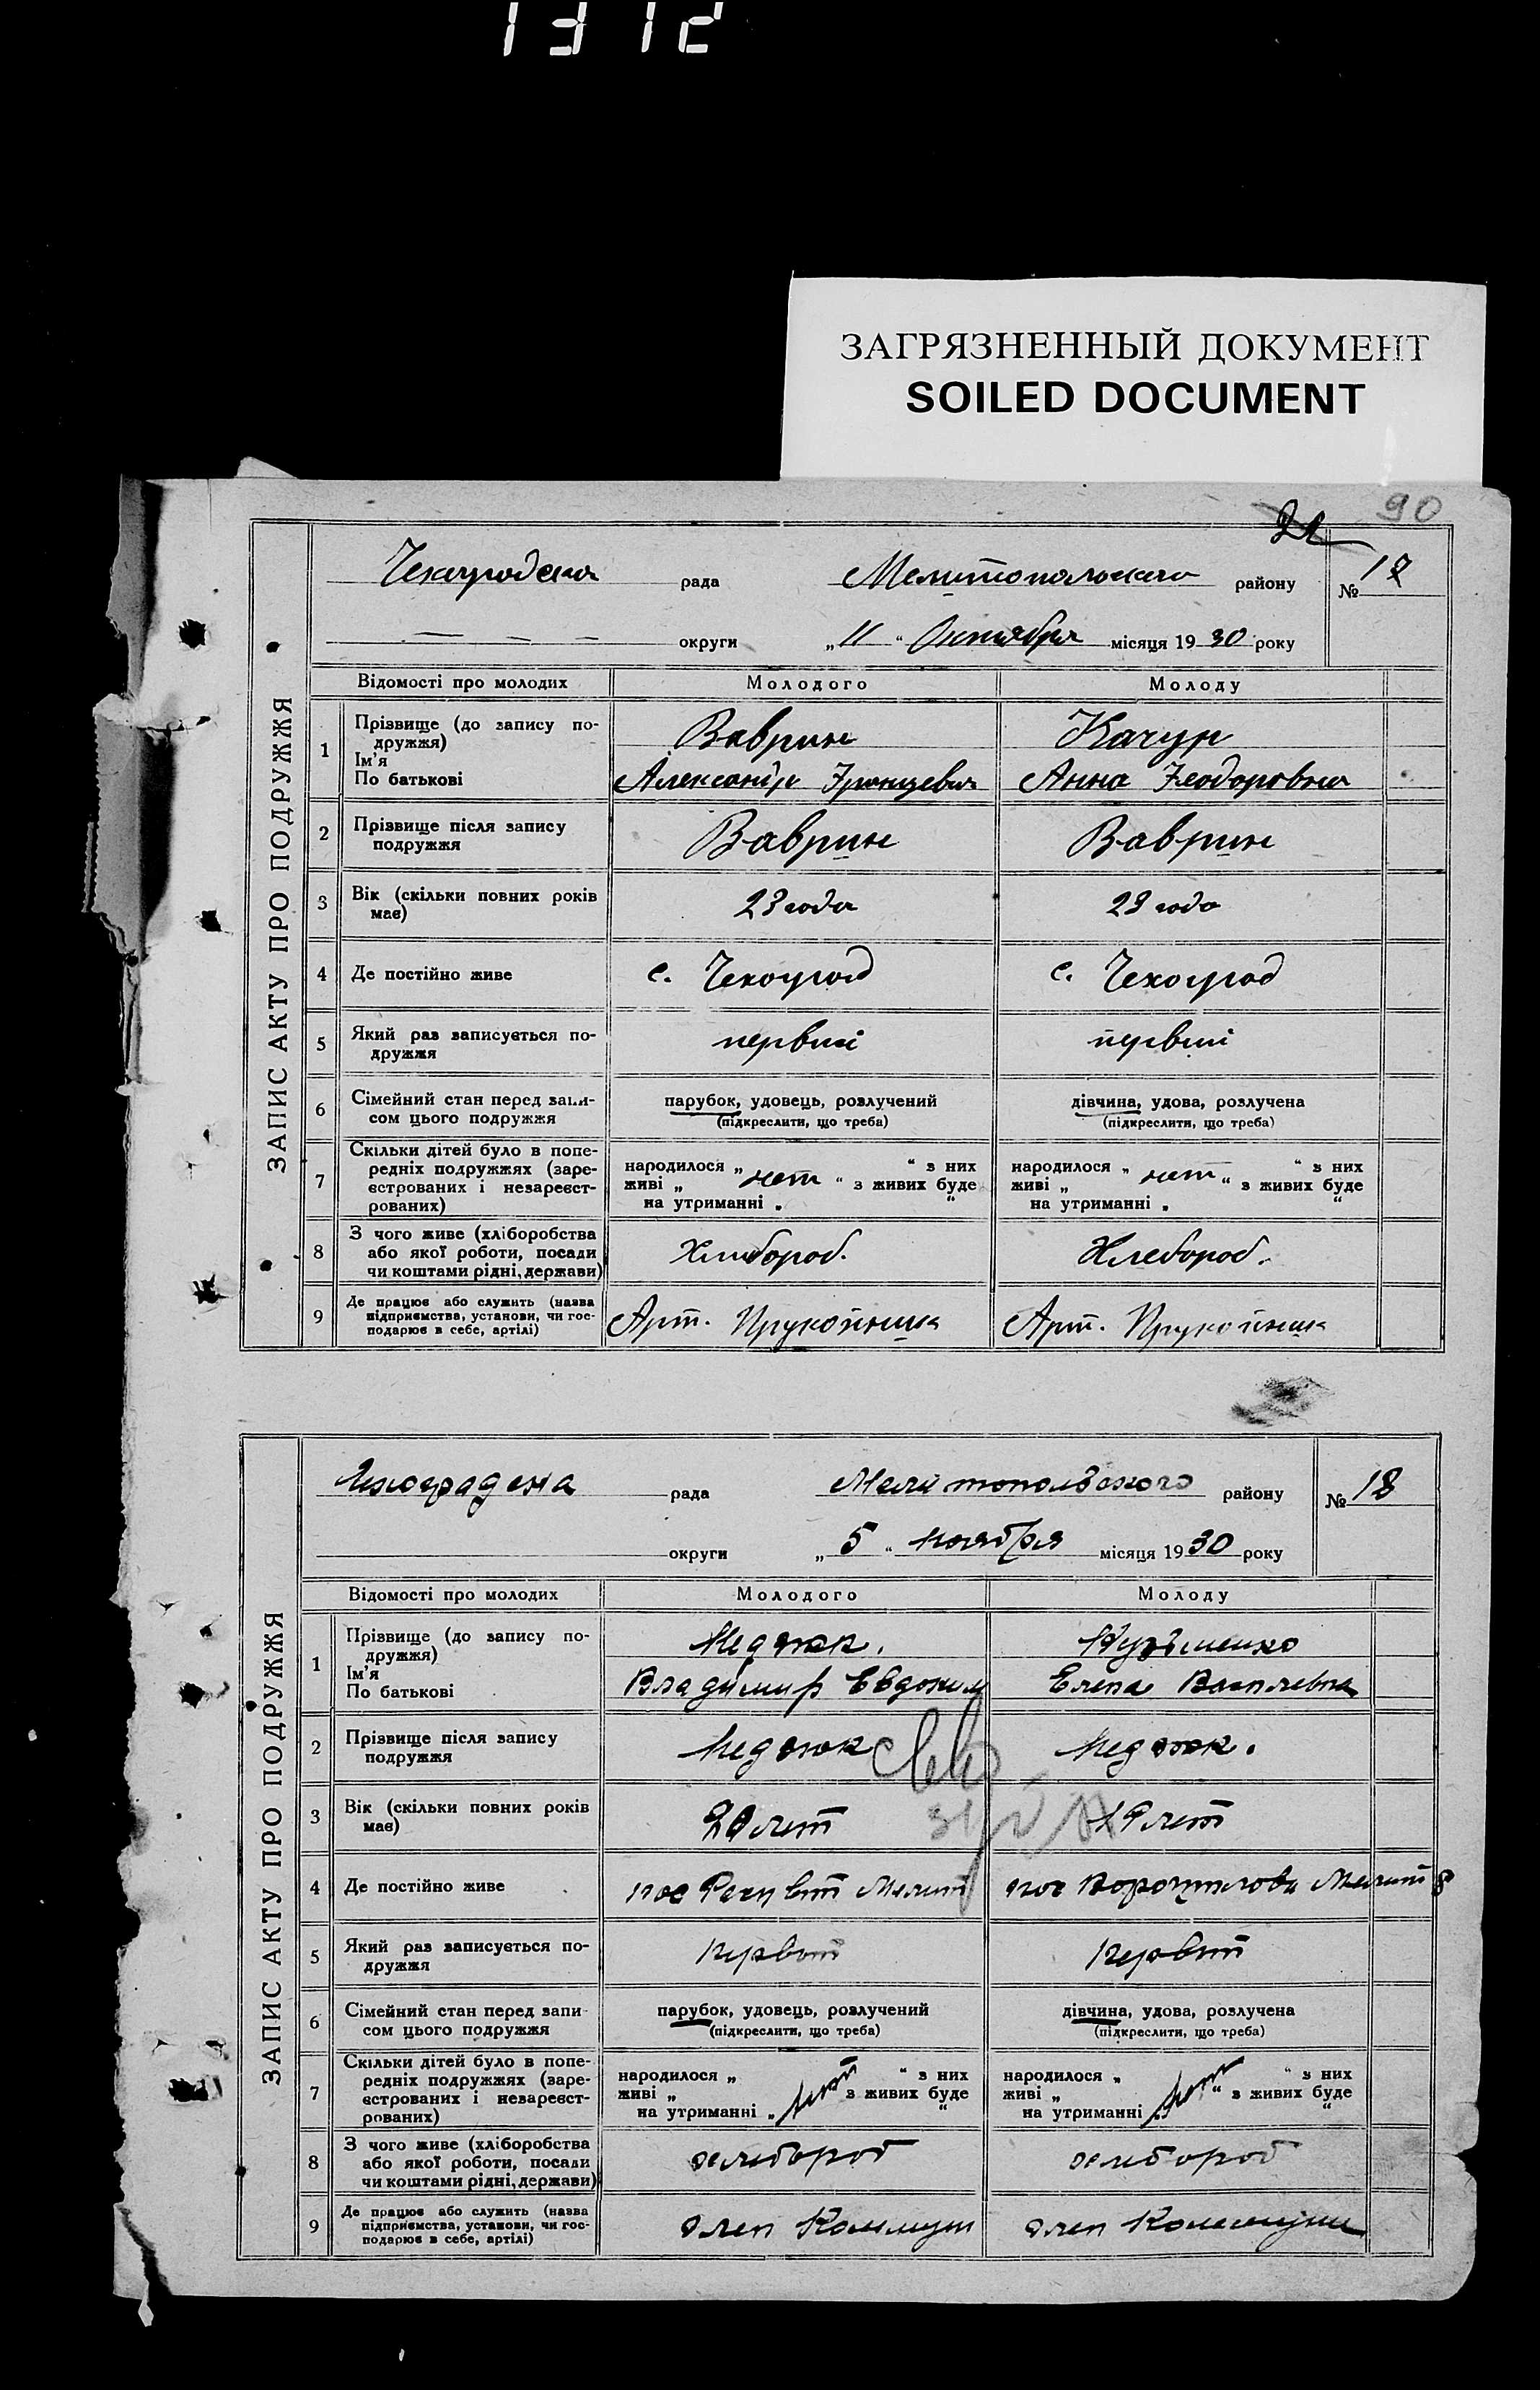 1312
ЗАГРЯЗНЕННЫЙ ДОКУМЕНТ
SOILED DOCUMENT
90
ЗАПИС АКТУ ПРО ПОДРУЖЖЯ
Чехоградская рада Мелитопольского району № 17
— — — — округи „11“ Октября місяця 1930 року
Відомості про молодих Молодого Молоду
1 Прізвище (до запису по-
дружжя)
Ім'я
По батькові
Ваврин Качур
Александр Францевич Анна Феодоровна
2 Прізвище після запису
подружжя
Ваврин Ваврин
3 Вік (скільки повних років
має)
23 года 23 года
4 Де постійно живе с. Чехоград с. Чехоград
5 Який раз записується по-
дружжя
первий первий
6 Сімейний стан перед запи-
сом цього подружжя
парубок, удовець, розлучений дівчина, удова, розлучена
(підкреслити, що треба) (підкреслити, що треба)
7 Скільки дітей було в попе-
редніх подружжях (заре-
єстрованих і незареєст-
рованих)
народилося „ “ з них народилося „ “ з них
живі „ нет “ з живих буде живі „ нет “ з живих буде
на утриманні „ “ на утриманні „ “
8 З чого живе (хліборобства
або якої роботи, посади
чи коштами рідні, держави)
Хлибороб. Хлебороб.
9 Де працює або служить (назва
підприємства, установи, чи гос-
подарює в себе, артілі)
Арт. Арт.
ЗАПИС АКТУ ПРО ПОДРУЖЖЯ
рада Мелитопольского району № 18
округи „5“ ноября місяця 1930 року
Відомості про молодих Молодого Молоду
1 Прізвище (до запису по-
дружжя)
Ім'я
По батькові
Кузьменко
Владимир Евдоким Елена Васильевна
2 Прізвище після запису
подружжя
3 Вік (скільки повних років
має)
20 лет 19 лет
4 Де постійно живе
пос Мелит пос Ворошилова Мелит
5 Який раз записується по-
дружжя
6 Сімейний стан перед запи-
сом цього подружжя
парубок, удовець, розлучений дівчина, удова, розлучена
(підкреслити, що треба) (підкреслити, що треба)
7 Скільки дітей було в попе-
редніх подружжях (заре-
єстрованих і незареєст-
рованих)
народилося „ “ з них народилося „ “ з них
живі „ нет з живих буде живі „ нет “ з живих буде
на утриманні „ “ на утриманні „ “
8 З чого живе (хліборобства
або якої роботи, посади
чи коштами рідні, держави)
хлебороб хлебороб
9 Де працює або служить (назва
підприємства, установи, чи гос-
подарює в себе, артілі)
член Коммун член Коммуны